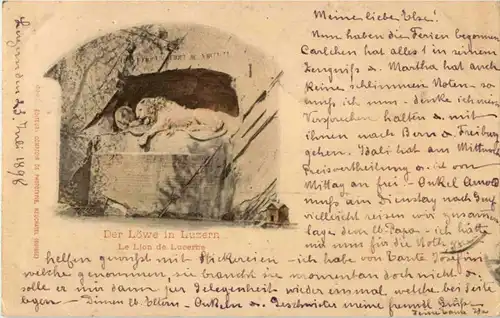 Luzern den 23. Juli 1898
Meine liebe Else!
Nun haben die Ferien begonnen
Carlchen hat alles 1 in seinem
Zeugniss & Martha hat auch
keine schlimmen Noten - so
muss ich nun - denke ich mein
Versprechen halten & mit
ihnen nach Bern & Freiburg
gehen. Bali hat am Mittwoch
Preisvertheilung & ist von
Mittag an frei! - Onkel Arnold
muss am Dienstag nach
vielleicht reisen wir zusammen
Papa - ich hätte
mir nun für die
Der Löwe in Luzern
Le Lion de Lucerne
helfen gewusst mit Stickereien - ich habe von Tante Josefine
welche genommen, sie braucht sie momentan doch nicht &
solle er mir dann per Gelegenheit wieder einmal welche bei Seite
legen - Deinen lb. Eltern - Onkeln & Geschwister meine freundl. Grüße
Deine Tante